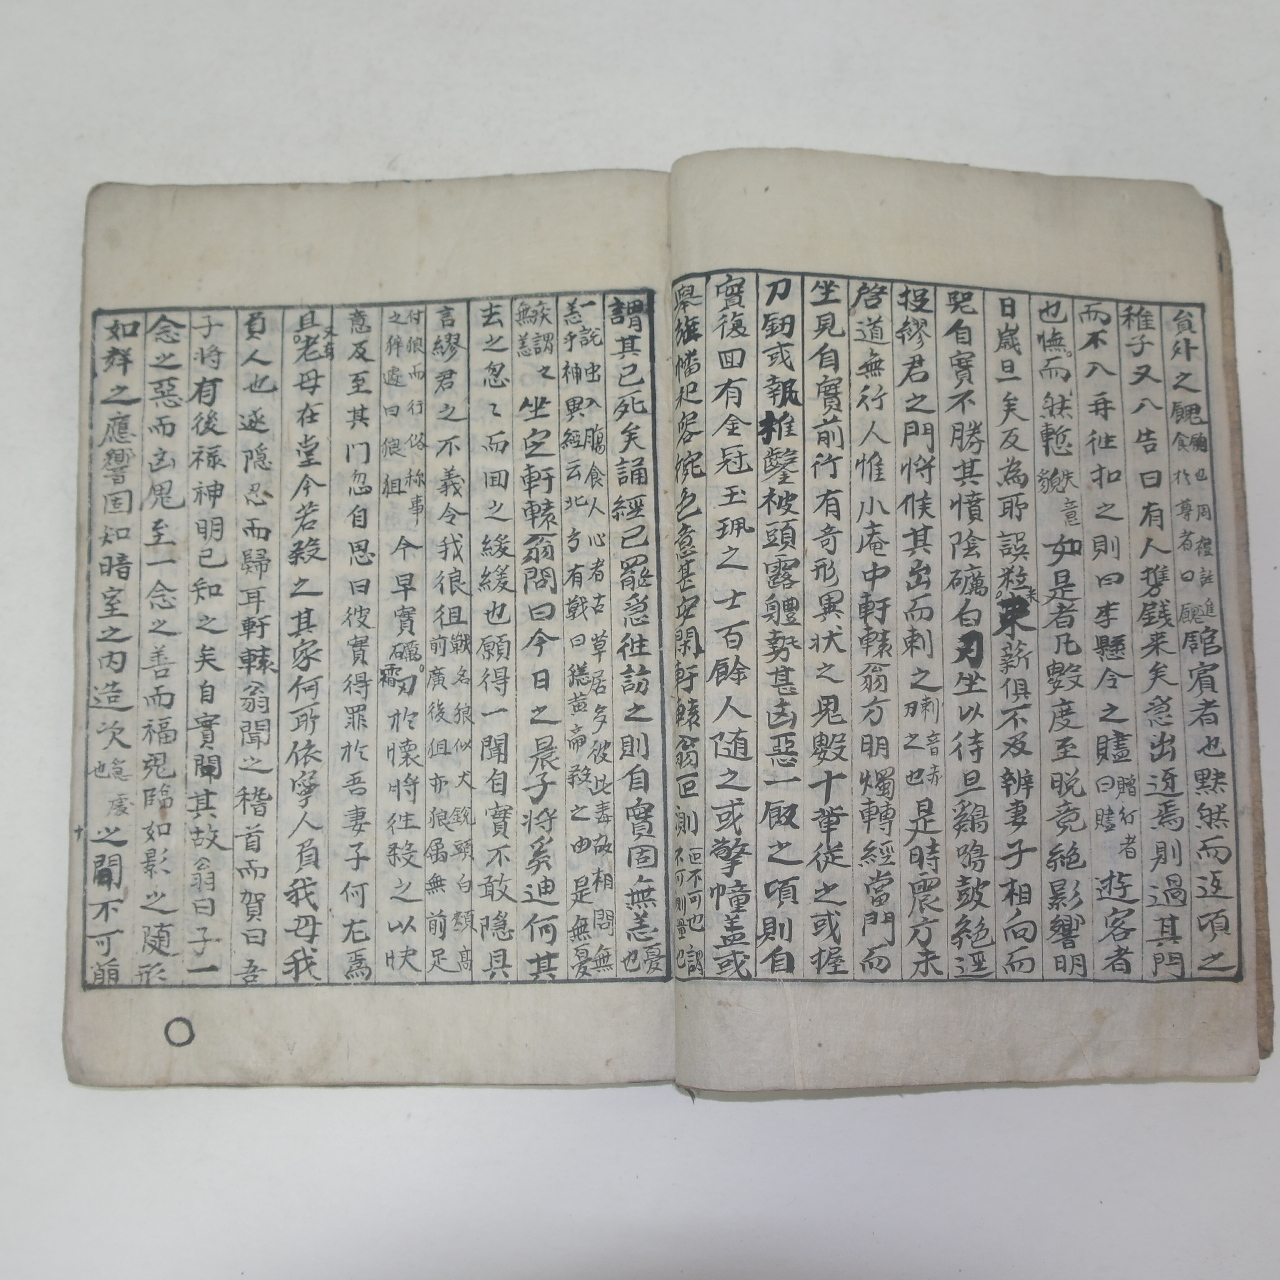 負外之餽餉也周禮註進食於尊者曰餽館賓者也黙然而返頃之
稚子又入告曰有人携銭来矣急出迓焉則過其門
而不入再徃扣之則曰李縣令之贐贈行者曰贐遊客者
也憮而然慙失意貌如是者凡數度至晩竟絶影響明
日歳旦矣反為所誤粒米束薪俱不及辨妻子相向而
哭自實不勝其憤陰礪白刃坐以待旦鷄鳴鼓絶逕
投繆君之門將候其出而刺之刺音赤刃之也是時震方未
啓道無行人惟小庵中軒轅翁方明燭轉經當門而
坐見自實前行有奇形異状之鬼數十輩從之或握
刀釼或執椎鑿被頭露軆勢甚凶惡一飯之頃則自
實復回有金冠玉珮之士百餘人隨之或擎幢盖或
舉旌幡和容婉色意甚安閑軒轅翁叵測叵不可也不可測量也謂
謂其已死矣誦經已罷急徃訪之則自實固無恙憂也
一說虫入腸食人心者古草居多彼此毒故相問無恙乎神異經云北方有獸曰㺊黄帝殺之由是無憂
疾謂之無恙坐定軒轅翁問曰今日之晨子將奚迪何其
去之忽〻而回之緩緩也願得一聞自實不敢隠具
言繆君之不義令我狼狙獸名狼似犬銳頭白頰高前廣後狙亦狼属無前足
付狼而行俗称事之猝遽曰狼狙今早實礪霜刃於懐將徃殺之以快
意及至其门忽自思曰彼實得罪於吾妻子何尤焉
且又有老母在堂今若殺之其家何所依寧人負我毋我
負人也遂隠忍而歸耳軒轅翁聞之稽首而賀曰吾
子將有後禄神明已知之矣自實問其故翁曰子一
念之惡而凶鬼至一念之善而福鬼臨如影之随形
如群之應響固知暗室之内造次也急處之間不可萠
十